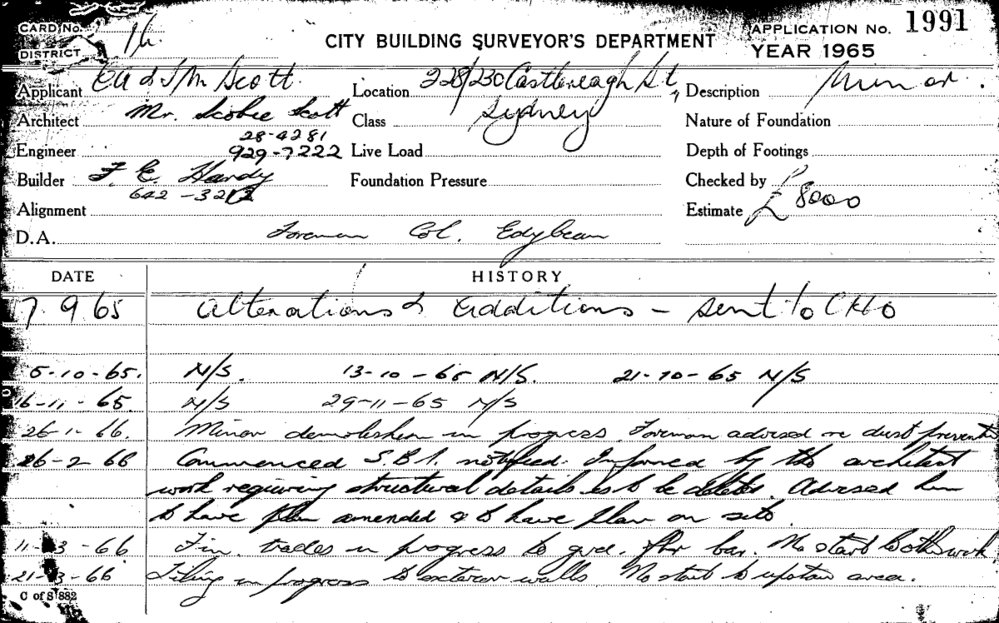 CARD No. 
DISTRICT 1h.
CITY BUILDING SURVEYOR'S DEPARTMENT
APPLICATION No. 1991
YEAR 1965
Applicant & J M Scott
Location 228/230 Castlereagh St, Sydney
Description Minor.
Architect Mr. Scobie Scott
28-4281
Class
Nature of Foundation
Engineer 929-7222
Live Load
Depth of Footings
Builder F. E. Hardy
642-3212
Foundation Pressure
Checked by
Alignment
Estimate £8000
D.A. Foreman Col. Edybean
DATE HISTORY
7.9.65 Alterations & Additions - sent to CHO
5-10-65. N/S. 13-10-65 N/S. 21-10-65 N/S
16-11-65. N/S 29-11-65 N/S
26-1-66. Minor demolishion in progress. Foreman advised re dust
26-2-66 Commenced S.B.I. notified. Informed by the architect
work requiring structural details is to be deleted. Advised him
to have plan amended & to have plan on site.
11-3-66 Fin. trades in progress to grd. flr bar. No start to oths work
21-3-66 Tiling in progress to exterior walls No start to upstair area.
C of S 882